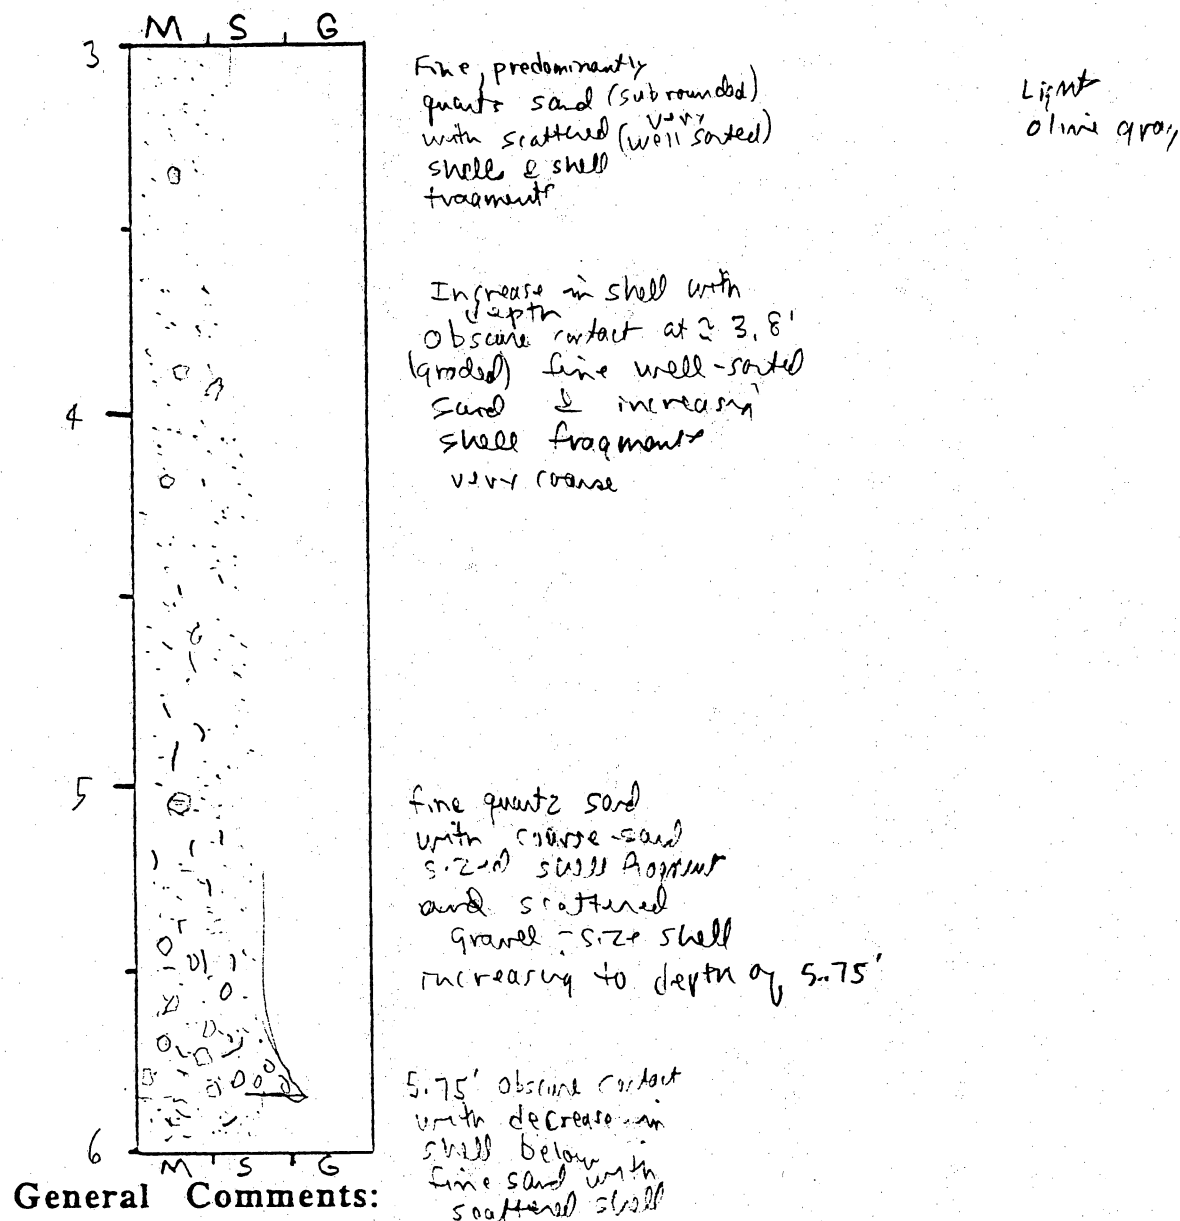 M S G
3
Fine, predominantly
quartz sand (subrounded)
with scattered (very well sorted)
shells & shell
fragments
Light
olive gray
Increase in shell with
depth
obscure contact at ≈ 3.8'
(graded) fine well-sorted
4
sand & increasing
shell fragments
very coarse
5
fine quartz sand
with coarse-sand
sized shell fragment
and scattered
gravel-size shell
increasing to depth of 5.75'
5.75' obscure contact
with decrease in
shell below
6
M S G
fine sand with
scattered shell
General Comments: